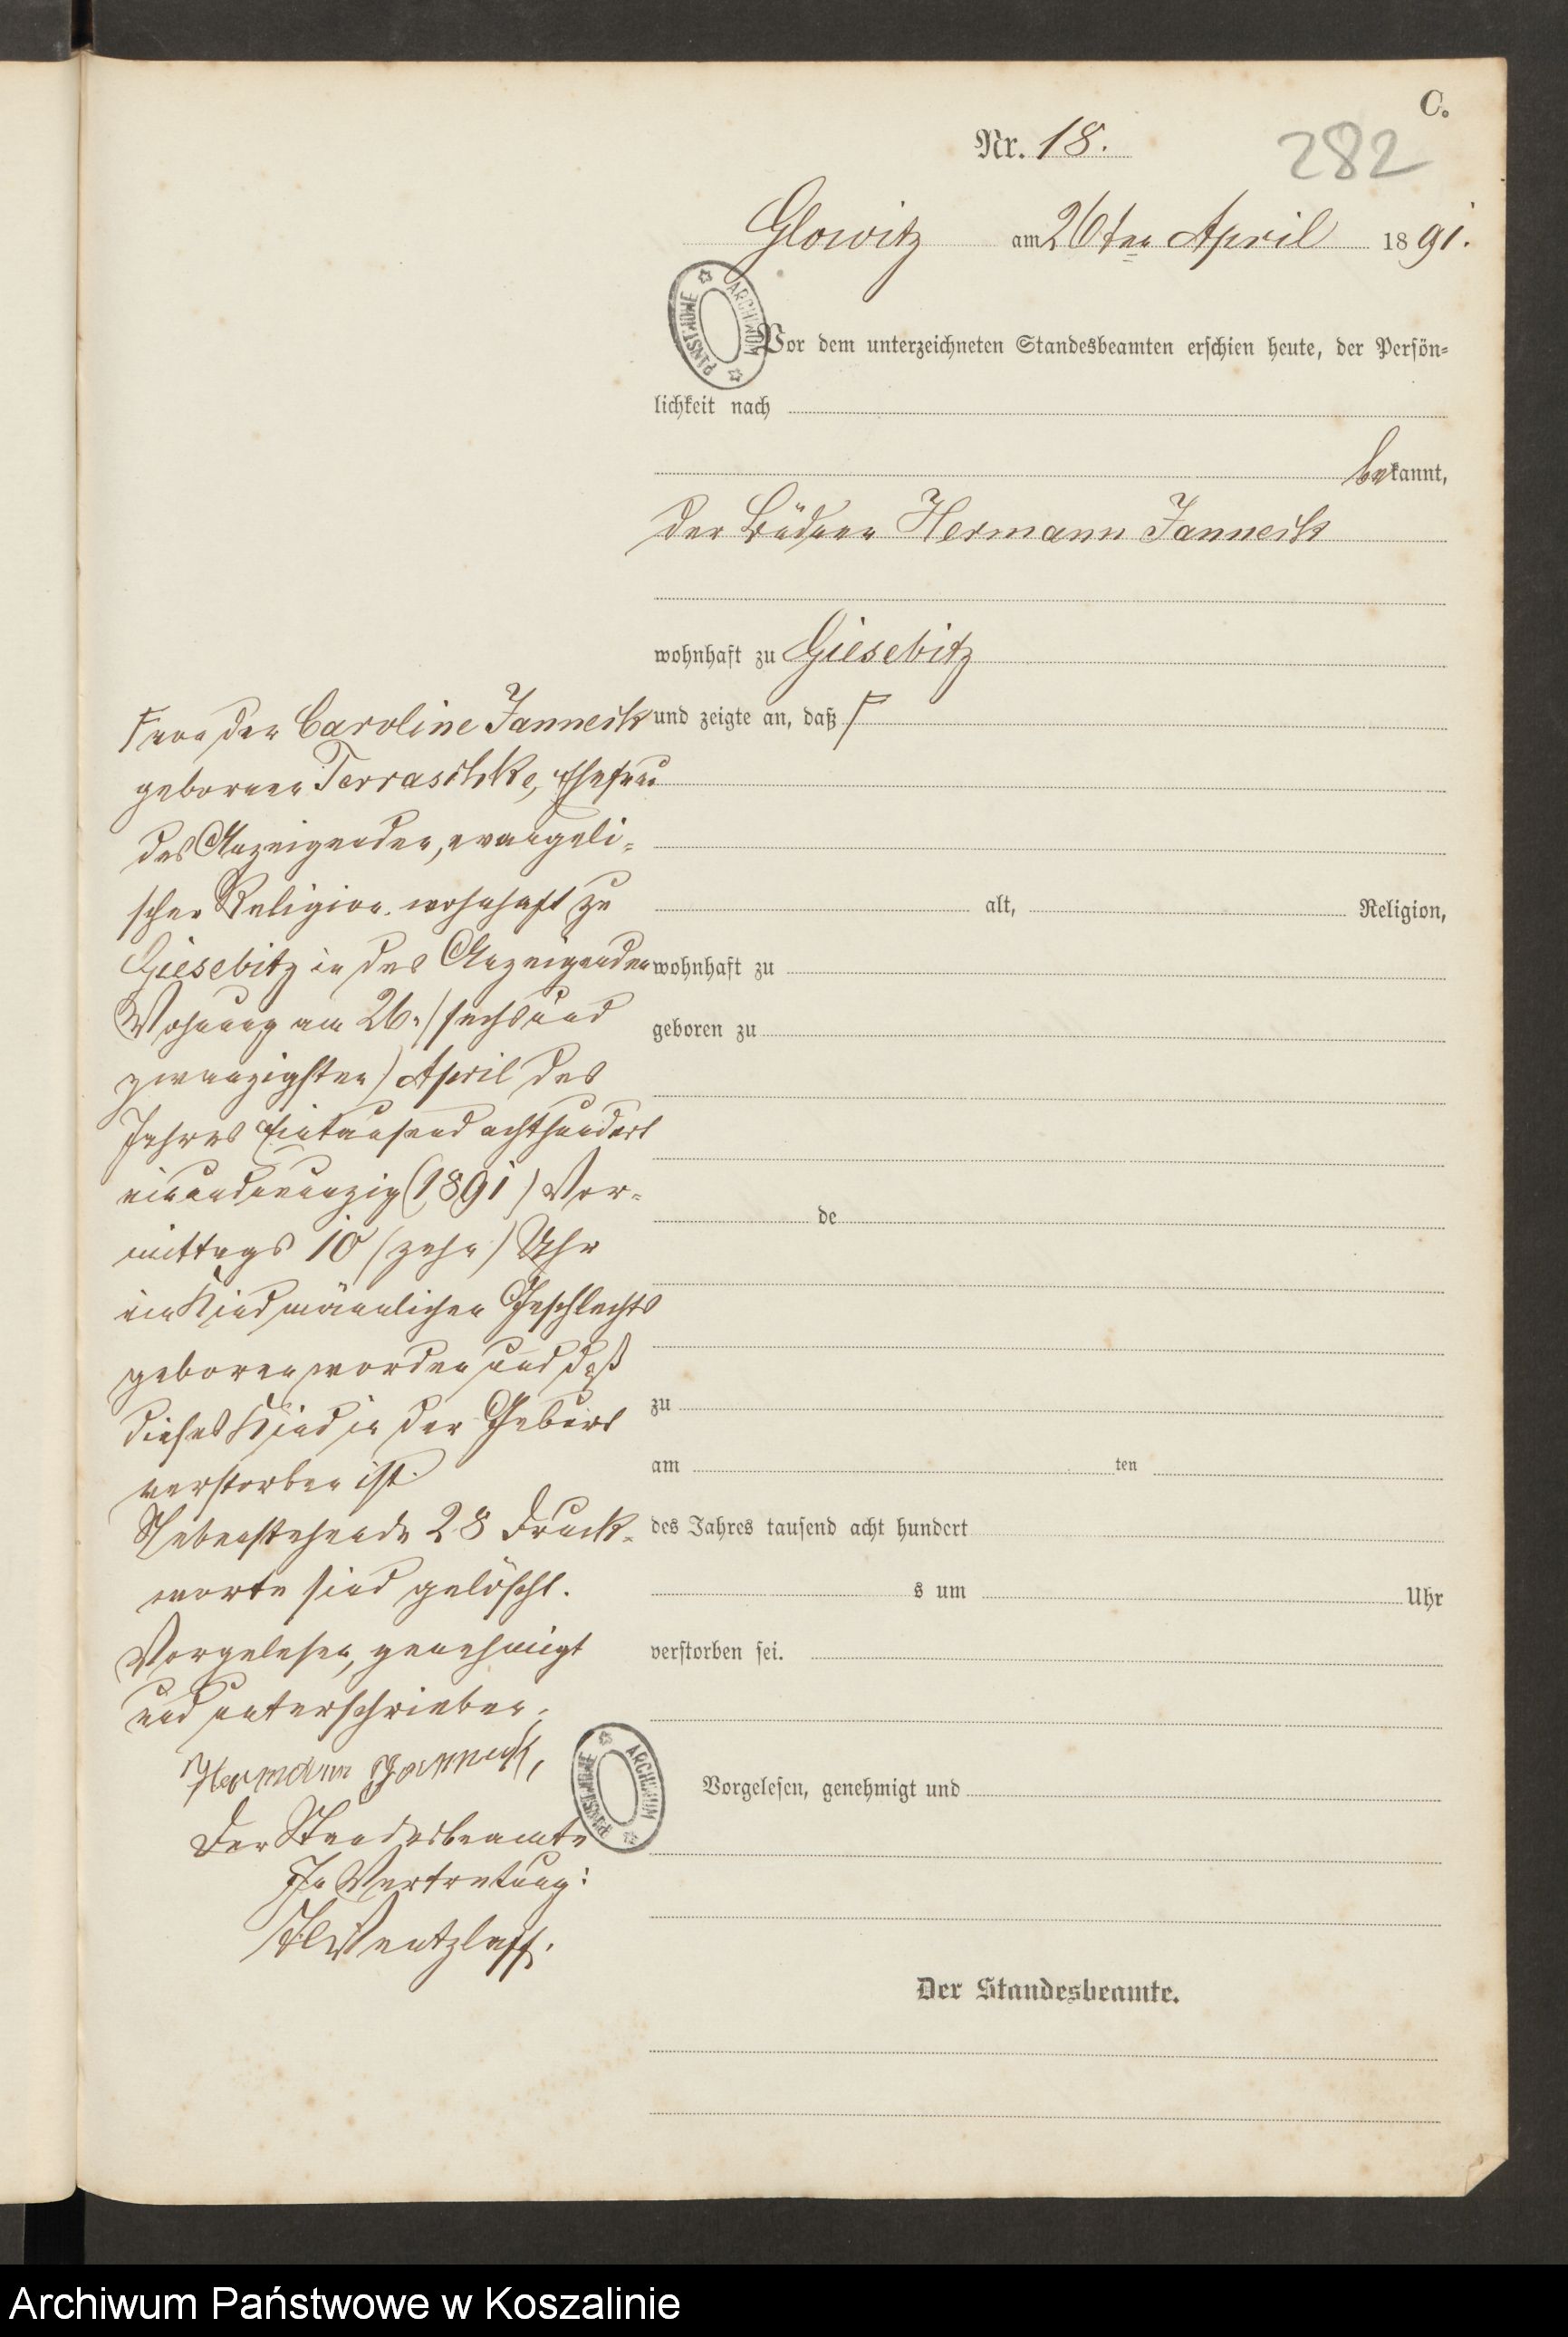 C.
Nr. 18.
282
Glowitz am 26ten April 1891.
ARCHIWUM PAŃSTWOWE
Vor dem unterzeichneten Standesbeamten erschien heute, der Persön-
lichkeit nach
bekannt,
der Büdner Hermann Janneck
wohnhaft zu Giesebitz
und zeigte an, daß Γ
alt, Religion,
wohnhaft zu
geboren zu
de
zu
am ten
des Jahres tausend acht hundert
s um Uhr
verstorben sei.
Vorgelesen, genehmigt und
Der Standesbeamte.
Γ von der Caroline Janneck
geborenen Terraschke, Ehefrau
des Anzeigenden, evangeli-
scher Religion, wohnhaft zu
Giesebitz in des Anzeigenden
Wohnung am 26. (sechsund
zwanzigsten) April des
Jahres Eintausend achthundert
einundneunzig (1891) Vor-
mittags 10 (zehn) Uhr
ein Kind männlichen Geschlechts
geboren worden und daß
dieses Kind in der Geburt
verstorben ist.
Nebenstehende 28 Druck-
worte sind gelöscht.
Vorgelesen, genehmigt
und unterschrieben.
Hermann Janneck,
Der Standesbeamte
In Vertretung:
Wentzlaff.
ARCHIWUM PAŃSTWOWE
Archiwum Państwowe w Koszalinie